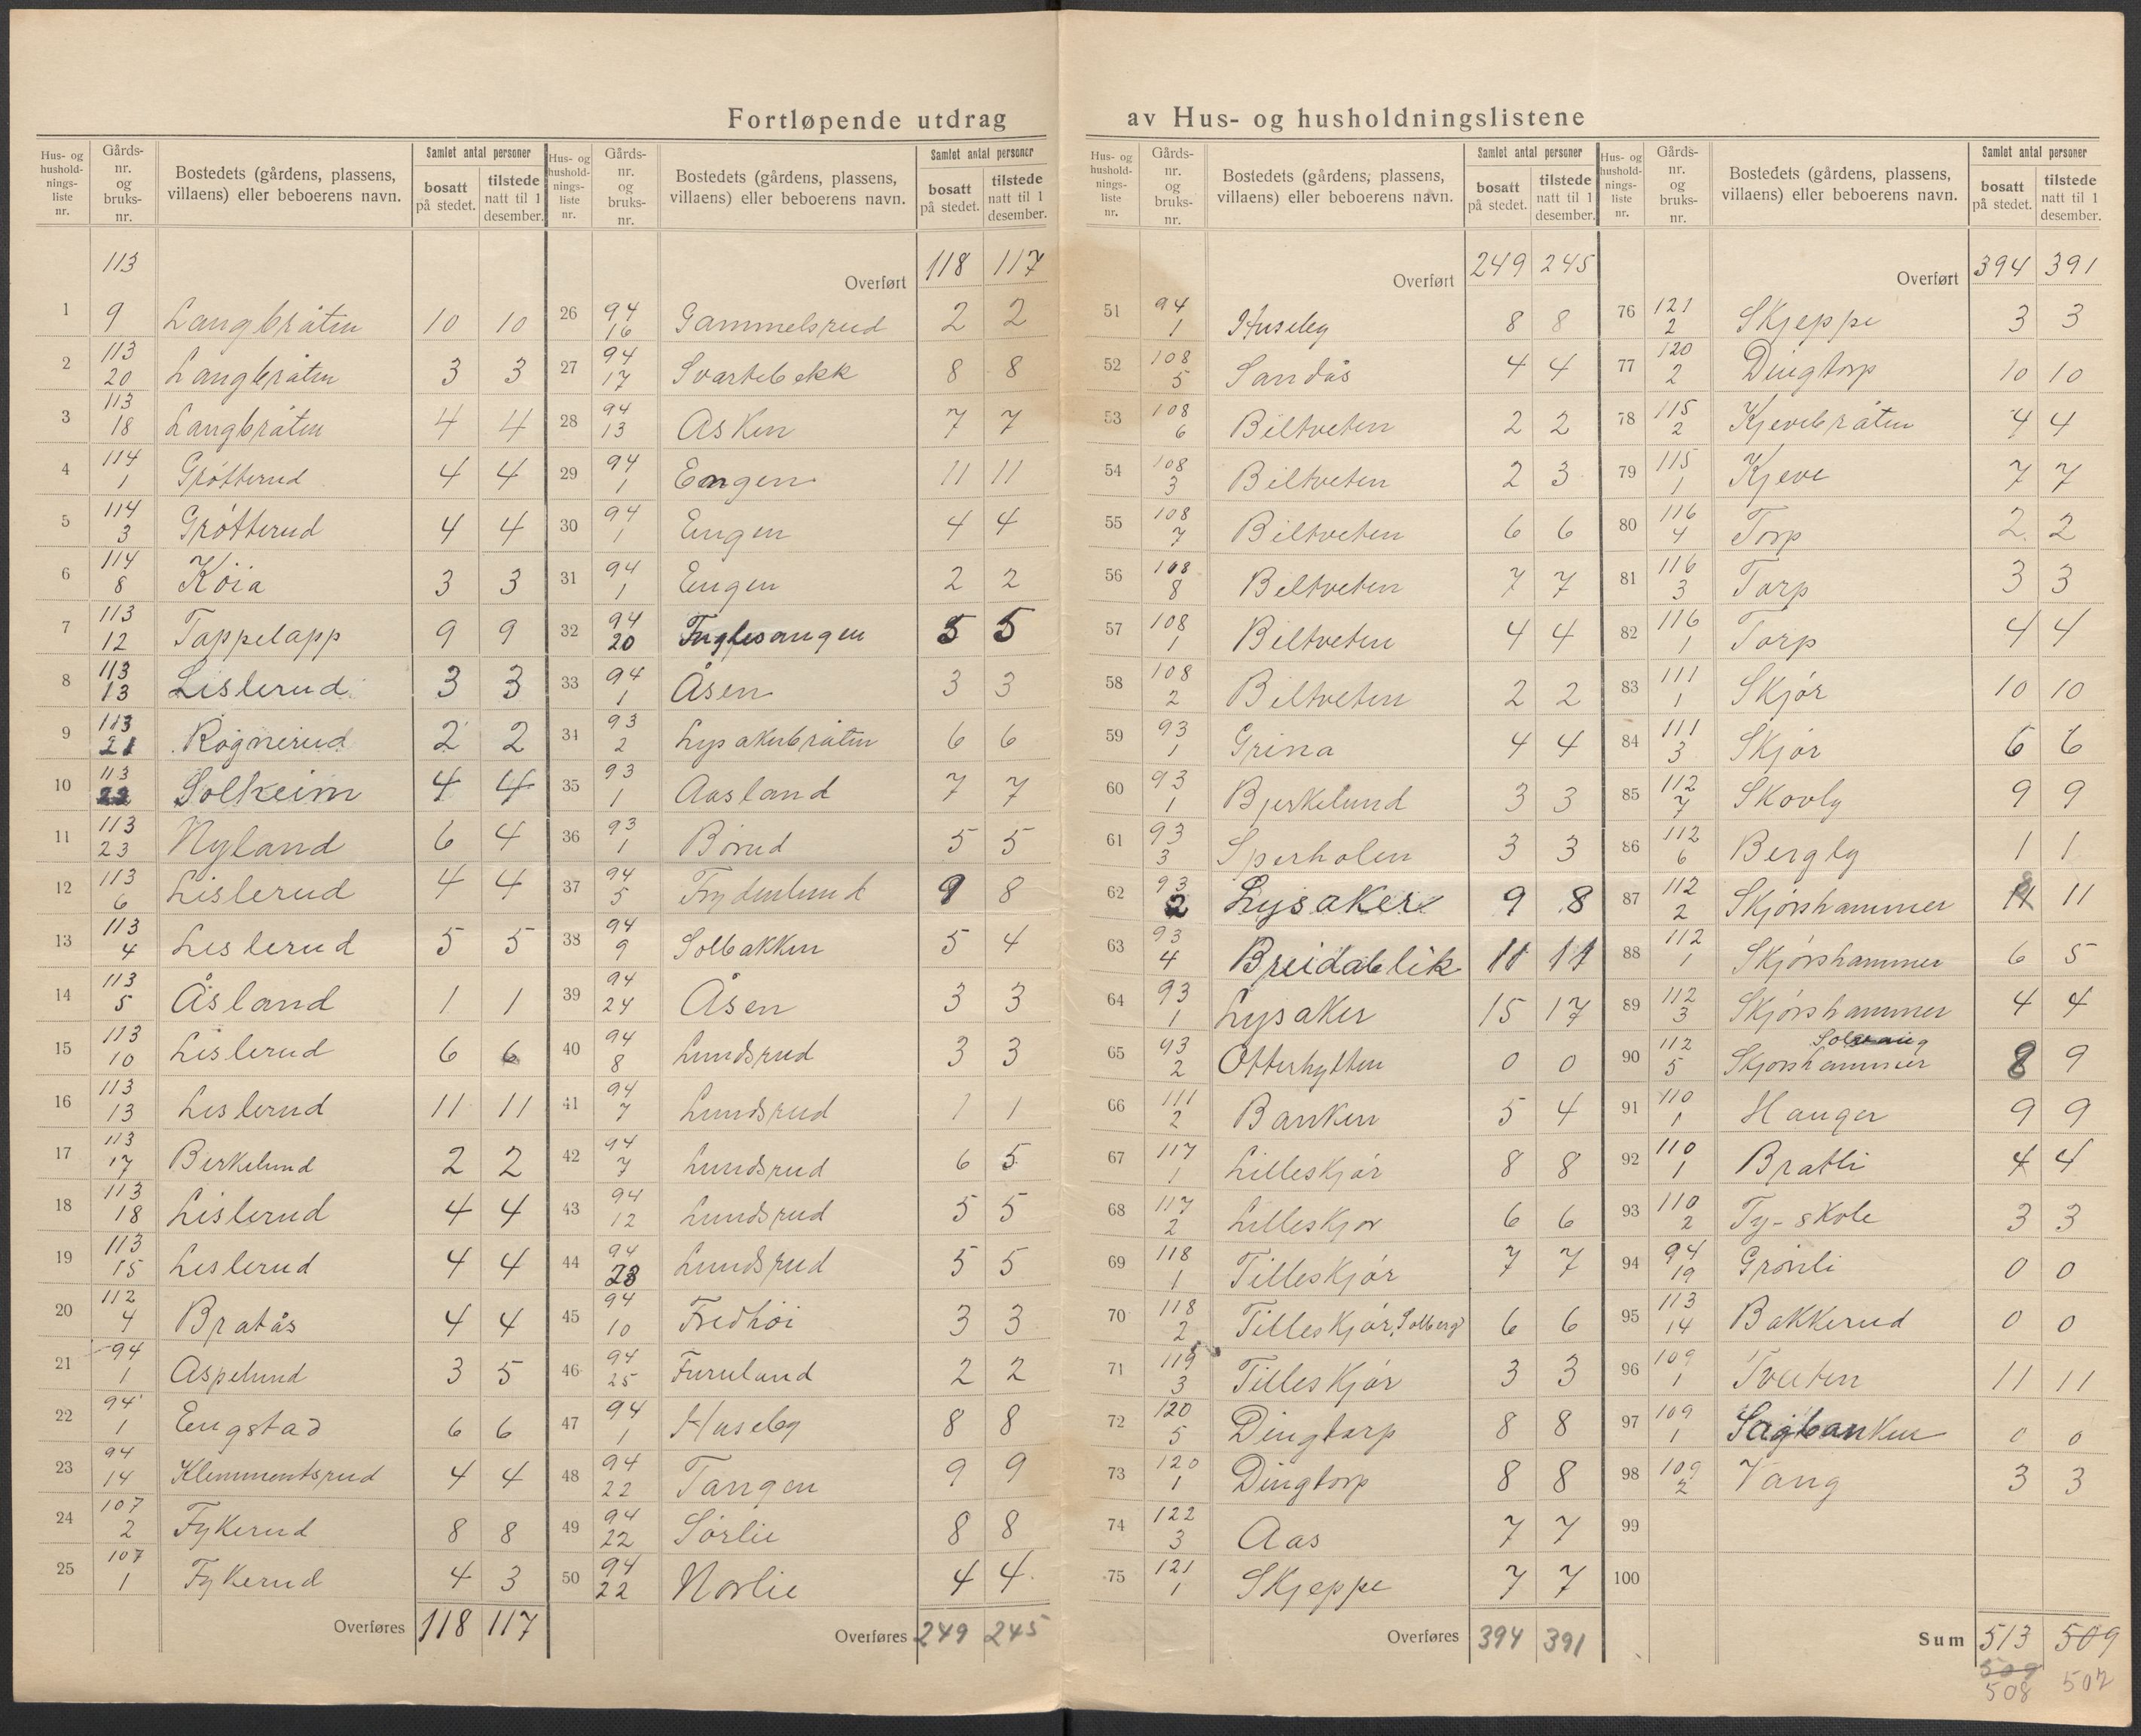 Fortløpende utdrag av Hus- og husholdningslistene
Hus- og husholdnings- liste nr. | Gårds- nr. og bruks- nr. | Bostedets (gårdens, plassens, villaens) eller beboerens navn. | Samlet antal personer | bosatt på stedet. | tilstede natt til 1 desember.
113
1 | 9 | Langbråten | 10 | 10
2 | 113 20 | Langbråten | 3 | 3
3 | 113 18 | Langbråten | 4 | 4
4 | 114 1 | Grötterud | 4 | 4
5 | 114 3 | Grötterud | 4 | 4
6 | 114 8 | Köia | 3 | 3
7 | 113 12 | Tappelapp | 9 | 9
8 | 113 13 | Lislerud | 3 | 3
9 | 113 21 | Rognerud | 2 | 2
10 | 113 22 | Solheim | 4 | 4
11 | 113 23 | Nyland | 6 | 4
12 | 113 6 | Lislerud | 4 | 4
13 | 113 4 | Lislerud | 5 | 5
14 | 113 5 | Åsland | 1 | 1
15 | 113 10 | Lislerud | 6 | 6
16 | 113 13 | Lislerud | 11 | 11
17 | 113 17 | Birkelund | 2 | 2
18 | 113 18 | Lislerud | 4 | 4
19 | 113 15 | Lislerud | 4 | 4
20 | 112 4 | Bratås | 4 | 4
21 | 94 1 | Aspelund | 3 | 5
22 | 94 1 | Engstad | 6 | 6
23 | 94 14 | Klemmentsrud | 4 | 4
24 | 107 2 | Fykerud | 8 | 8
25 | 107 1 | Fykerud | 4 | 3
Overføres | 118 | 117
Hus- og husholdnings- liste nr. | Gårds- nr. og bruks- nr. | Bostedets (gårdens, plassens, villaens) eller beboerens navn. | Samlet antal personer | bosatt på stedet. | tilstede natt til 1 desember.
Overført | 118 | 117
26 | 94 16 | Gammelsrud | 2 | 2
27 | 94 17 | Svartebekk | 8 | 8
28 | 94 13 | Asken | 7 | 7
29 | 94 1 | Engen | 11 | 11
30 | 94 1 | Engen | 4 | 4
31 | 94 1 | Engen | 2 | 2
32 | 94 20 | Fuglesangen | 5 | 5
33 | 94 1 | Åsen | 3 | 3
34 | 93 2 | Lysakerbråten | 6 | 6
35 | 93 1 | Aasland | 7 | 7
36 | 93 1 | Börud | 5 | 5
37 | 94 5 | Frydenlund | 9 | 8
38 | 94 9 | Solbakken | 5 | 4
39 | 94 24 | Åsen | 3 | 3
40 | 94 8 | Lundsrud | 3 | 3
41 | 94 7 | Lundsrud | 1 | 1
42 | 94 7 | Lundsrud | 6 | 5
43 | 94 12 | Lundsrud | 5 | 5
44 | 94 23 | Lundsrud | 5 | 5
45 | 94 10 | Fredhöi | 3 | 3
46 | 94 25 | Furuland | 2 | 2
47 | 94 1 | Huseby | 8 | 8
48 | 94 22 | Tangen | 9 | 9
49 | 94 22 | Sörlie | 8 | 8
50 | 94 22 | Norlie | 4 | 4
Overføres | 249 | 245
Hus- og husholdnings- liste nr. | Gårds- nr. og bruks- nr. | Bostedets (gårdens, plassens, villaens) eller beboerens navn. | Samlet antal personer | bosatt på stedet. | tilstede natt til 1 desember.
Overført | 249 | 245
51 | 94 1 | Huseby | 8 | 8
52 | 108 5 | Sandås | 4 | 4
53 | 108 6 | Biltveten | 2 | 2
54 | 108 3 | Biltveten | 2 | 3
55 | 108 7 | Biltveten | 6 | 6
56 | 108 8 | Biltveten | 7 | 7
57 | 108 1 | Biltveten | 4 | 4
58 | 108 2 | Biltveten | 2 | 2
59 | 93 1 | Grina | 4 | 4
60 | 93 1 | Bjerkelund | 3 | 3
61 | 93 3 | Sperholen | 3 | 3
62 | 93 2 | Lysaker | 9 | 8
63 | 93 4 | Breidablik | 11 | 11
64 | 93 1 | Lysaker | 15 | 17
65 | 93 2 | Otterhytten | 0 | 0
66 | 111 2 | Banken | 5 | 4
67 | 117 1 | Lilleskjör | 8 | 8
68 | 117 2 | Lilleskjör | 6 | 6
69 | 118 1 | Tilleskjör | 7 | 7
70 | 118 2 | Tilleskjör, Solberg | 6 | 6
71 | 119 3 | Tilleskjör | 3 | 3
72 | 120 5 | Dingtorp | 8 | 8
73 | 120 1 | Dingtorp | 8 | 8
74 | 122 3 | Aas | 7 | 7
75 | 121 1 | Skjeppe | 7 | 7
Overføres | 394 | 391
Hus- og husholdnings- liste nr. | Gårds- nr. og bruks- nr. | Bostedets (gårdens, plassens, villaens) eller beboerens navn. | Samlet antal personer | bosatt på stedet. | tilstede natt til 1 desember.
Overført | 394 | 391
76 | 121 2 | Skjeppe | 3 | 3
77 | 120 2 | Dingtorp | 10 | 10
78 | 115 2 | Kjevebråten | 4 | 4
79 | 115 1 | Kjeve | 7 | 7
80 | 116 4 | Torp | 2 | 2
81 | 116 3 | Torp | 3 | 3
82 | 116 1 | Torp | 4 | 4
83 | 111 1 | Skjör | 10 | 10
84 | 111 3 | Skjör | 6 | 6
85 | 112 7 | Skovly | 9 | 9
86 | 112 6 | Bergly | 1 | 1
87 | 112 2 | Skjörshammer | 11 | 11
88 | 112 1 | Skjörshammer | 6 | 5
89 | 112 3 | Skjörshammer | 4 | 4
90 | 112 5 | Solvang Skjörshammer | 8 | 9
91 | 110 1 | Hauger | 9 | 9
92 | 110 1 | Bratli | 4 | 4
93 | 110 2 | Ty-skole | 3 | 3
94 | 94 19 | Grönli | 0 | 0
95 | 113 14 | Bakkerud | 0 | 0
96 | 109 1 | Tveten | 11 | 11
97 | 109 1 | Sagbanken | 0 | 0
98 | 109 2 | Vang | 3 | 3
99
100
Sum | 513 | 509
509
508 | 507